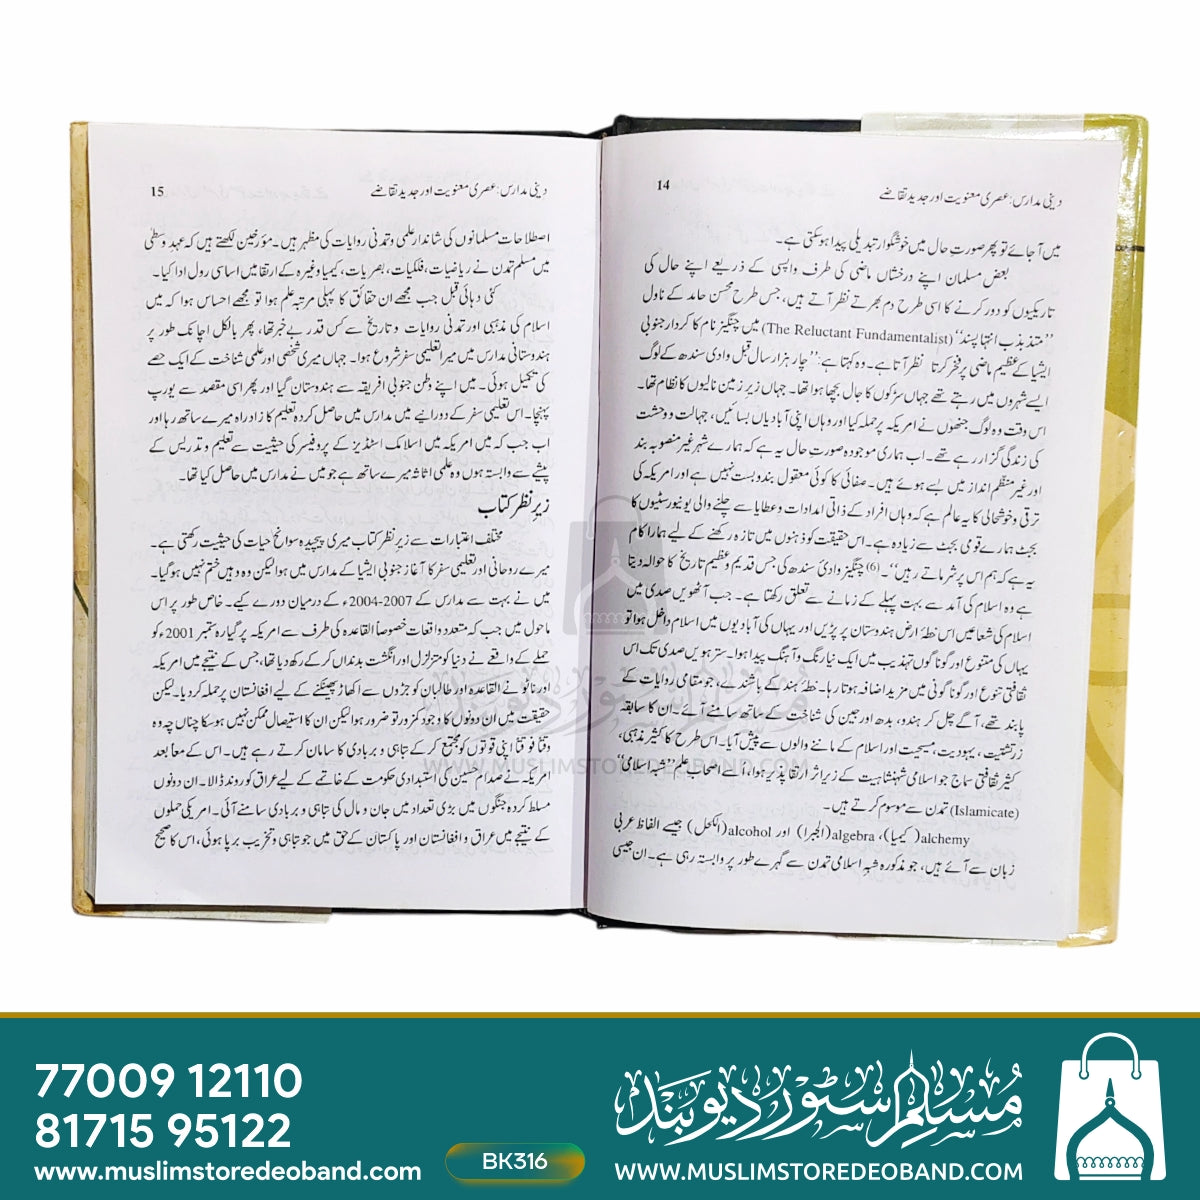 دینی مدارس: عصری معنویت اور جدید تقاضے
14
میں آجائے تو پھر صورتِ حال میں خوشگوار تبدیلی پیدا ہوسکتی ہے۔
بعض مسلمان اپنے درخشاں ماضی کی طرف واپسی کے ذریعے اپنے حال کی
تاریکیوں کو دور کرنے کا اسی طرح دم بھرتے نظر آتے ہیں، جس طرح محسن حامد کے ناول
”متذبذب انتہا پسند“ (The Reluctant Fundamentalist) میں چنگیز نام کا کردار جنوبی
ایشیا کے عظیم ماضی پر فخر کرتا نظر آتا ہے۔ وہ کہتا ہے: ”چار ہزار سال قبل وادی سندھ کے لوگ
ایسے شہروں میں رہتے تھے جہاں سڑکوں کا جال بچھا ہوا تھا۔ جہاں زیر زمین نالیوں کا نظام تھا۔
اس وقت وہ لوگ جنھوں نے امریکہ پر حملہ کیا اور وہاں اپنی آبادیاں بسائیں، جہالت و وحشت
کی زندگی گزار رہے تھے۔ اب ہماری موجودہ صورتِ حال یہ ہے کہ ہمارے شہر غیر منصوبہ بند
اور غیر منظم انداز میں بسے ہوئے ہیں۔ صفائی کا کوئی معقول بندوبست نہیں ہے اور امریکہ کی
ترقی و خوشحالی کا یہ عالم ہے کہ وہاں افراد کے ذاتی امدادات و عطایا سے چلنے والی یونیورسٹیوں کا
بجٹ ہمارے قومی بجٹ سے زیادہ ہے۔ اس حقیقت کو ذہنوں میں تازہ رکھنے کے لیے ہمارا کام
یہ ہے کہ ہم اس پر شرماتے رہیں“۔(6) چنگیز وادئ سندھ کی جس قدیم و عظیم تاریخ کا حوالہ دیتا
ہے وہ اسلام کی آمد سے بہت پہلے کے زمانے سے تعلق رکھتا ہے۔ جب آٹھویں صدی میں
اسلام کی شعاعیں اس خطۂ ارض ہندوستان پر پڑیں اور یہاں کی آبادیوں میں اسلام داخل ہوا تو
یہاں کی متنوع اور گوناگوں تہذیب میں ایک نیا رنگ و آہنگ پیدا ہوا۔ سترھویں صدی تک اس
ثقافتی تنوع اور گوناگونی میں مزید اضافہ ہوتا رہا۔ خطۂ ہند کے باشندے، جو مقامی روایات کے
پابند تھے، آگے چل کر ہندو، بدھ اور جین کی شناخت کے ساتھ سامنے آئے۔ ان کا سابقہ
زرتشتیت، یہودیت، مسیحیت اور اسلام کے ماننے والوں سے پیش آیا۔ اس طرح کا کثیر مذہبی،
کثیر ثقافتی سماج جو اسلامی شہنشاہیت کے زیر اثر ارتقا پذیر ہوا، اُسے اصحاب علم ”شبہ اسلامی“
(Islamicate) تمدن سے موسوم کرتے ہیں۔
alchemy (کیمیا)، algebra (الجبرا) اور alcohol (الکحل) جیسے الفاظ عربی
زبان سے آئے ہیں، جو مذکورہ شبہ اسلامی تمدن سے گہرے طور پر وابستہ رہی ہے۔ ان جیسی
دینی مدارس: عصری معنویت اور جدید تقاضے
15
اصطلاحات مسلمانوں کی شاندار علمی و تمدنی روایات کی مظہر ہیں۔ مؤرخین لکھتے ہیں کہ عہد وسطیٰ
میں مسلم تمدن نے ریاضیات، فلکیات، بصریات، کیمیا وغیرہ کے ارتقا میں اساسی رول ادا کیا۔
کئی دہائی قبل جب مجھے ان حقائق کا پہلی مرتبہ علم ہوا تو مجھے احساس ہوا کہ میں
اسلام کی مذہبی اور تمدنی روایات و تاریخ سے کس قدر بے خبر تھا، پھر بالکل اچانک طور پر
ہندوستانی مدارس میں میرا تعلیمی سفر شروع ہوا۔ جہاں میری شخصی اور علمی شناخت کے ایک حصے
کی تکمیل ہوئی۔ میں اپنے وطن جنوبی افریقہ سے ہندوستان گیا اور پھر اسی مقصد سے یورپ
پہنچا۔ اس تعلیمی سفر کے دورانیے میں مدارس میں حاصل کردہ تعلیم کا زادِ راہ میرے ساتھ رہا اور
اب جب کہ میں امریکہ میں اسلامک اسٹڈیز کے پروفیسر کی حیثیت سے تعلیم و تدریس کے
پیشے سے وابستہ ہوں وہ علمی اثاثہ میرے ساتھ ہے جو میں نے مدارس میں حاصل کیا تھا۔
زیر نظر کتاب
مختلف اعتبارات سے زیر نظر کتاب میری پیچیدہ سوانح حیات کی حیثیت رکھتی ہے۔
میرے روحانی اور تعلیمی سفر کا آغاز جنوبی ایشیا کے مدارس میں ہوا لیکن وہ وہیں ختم نہیں ہوگیا۔
میں نے بہت سے مدارس کے 2004-2007ء کے درمیان دورے کیے۔ خاص طور پر اس
ماحول میں جب کہ متعدد واقعات خصوصاً القاعدہ کی طرف سے امریکہ پر گیارہ ستمبر 2001ء کو
حملے کے واقعے نے دنیا کو متزلزل اور انگشت بدنداں کر کے رکھ دیا تھا، جس کے نتیجے میں امریکہ
اور ناٹو نے القاعدہ اور طالبان کو جڑوں سے اکھاڑ پھینکنے کے لیے افغانستان پر حملہ کردیا۔ لیکن
حقیقت میں ان دونوں کا وجود کمزور تو ضرور ہوا لیکن ان کا استیصال ممکن نہیں ہوسکا چناں چہ وہ
وقتاً فوقتاً اپنی قوتوں کو مجتمع کر کے تباہی و بربادی کا سامان کرتے رہے ہیں۔ اس کے معاً بعد
امریکہ نے صدام حسین کی استبدادی حکومت کے خاتمے کے لیے عراق کو روند ڈالا۔ ان دونوں
مسلط کردہ جنگوں میں بڑی تعداد میں جان و مال کی تباہی و بربادی سامنے آئی۔ امریکی حملوں
کے نتیجے میں عراق و افغانستان اور پاکستان کے حق میں جو تباہی و تخریب برپا ہوئی، اس کا صحیح
مسلم سٹور دیوبند
WWW.MUSLIMSTOREDEOBAND.COM
77009 12110
81715 95122
www.muslimstoredeoband.com
BK316
مسلم سٹور دیوبند
WWW.MUSLIMSTOREDEOBAND.COM